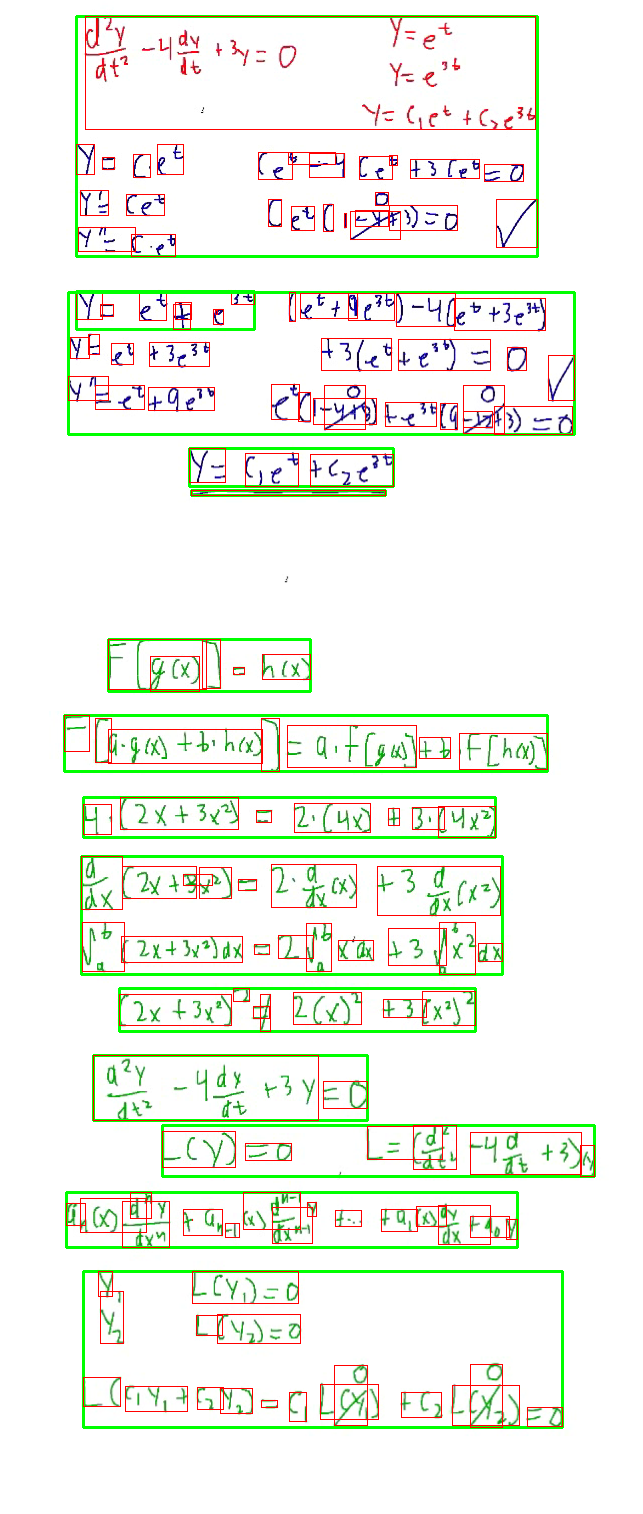 d²y/dt² - 4 dy/dt + 3y = 0
y = e^t
y = e^3t
y = c₁e^t + c₂e^3t
y = Ce^t
Ce^t - 4 Ce^t + 3Ce^t = 0
y' = Ce^t
Ce^t (1 - 4 + 3) = 0 ✓
0
y'' = C·e^t
y = e^t + e^3t
(e^t + 9e^3t) - 4(e^t + 3e^3t)
y' = e^t + 3e^3t
+ 3(e^t + e^3t) = 0
y'' = e^t + 9e^3t
0 0
e^t(1 - 4 + 3) + e^3t(9 - 12 + 3) = 0 ✓
y = c₁e^t + c₂e^3t
F[g(x)] = h(x)
F[a·g(x) + b·h(x)] = a·F[g(x)] + b·F[h(x)]
4·(2x + 3x²) = 2·(4x) + 3·(4x²)
d/dx (2x + 3x²) = 2·d/dx(x) + 3 d/dx(x²)
∫ₐᵇ (2x + 3x²)dx = 2∫ₐᵇ x dx + 3∫ₐᵇ x² dx
(2x + 3x²)² ≠ 2(x)² + 3(x²)²
d²y/dt² - 4 dx/dt + 3y = 0
L(y) = 0
L = (d²/dt² - 4 d/dt + 3)y
aₙ(x) dⁿy/dxⁿ + aₙ₋₁(x) dⁿ⁻¹y/dxⁿ⁻¹ + ... + a₁(x) dy/dx + a₀y
y₁ L(y₁) = 0
y₂ L(y₂) = 0
0 0
L(c₁y₁ + c₂y₂) = c₁ L(y₁) + c₂ L(y₂) = 0